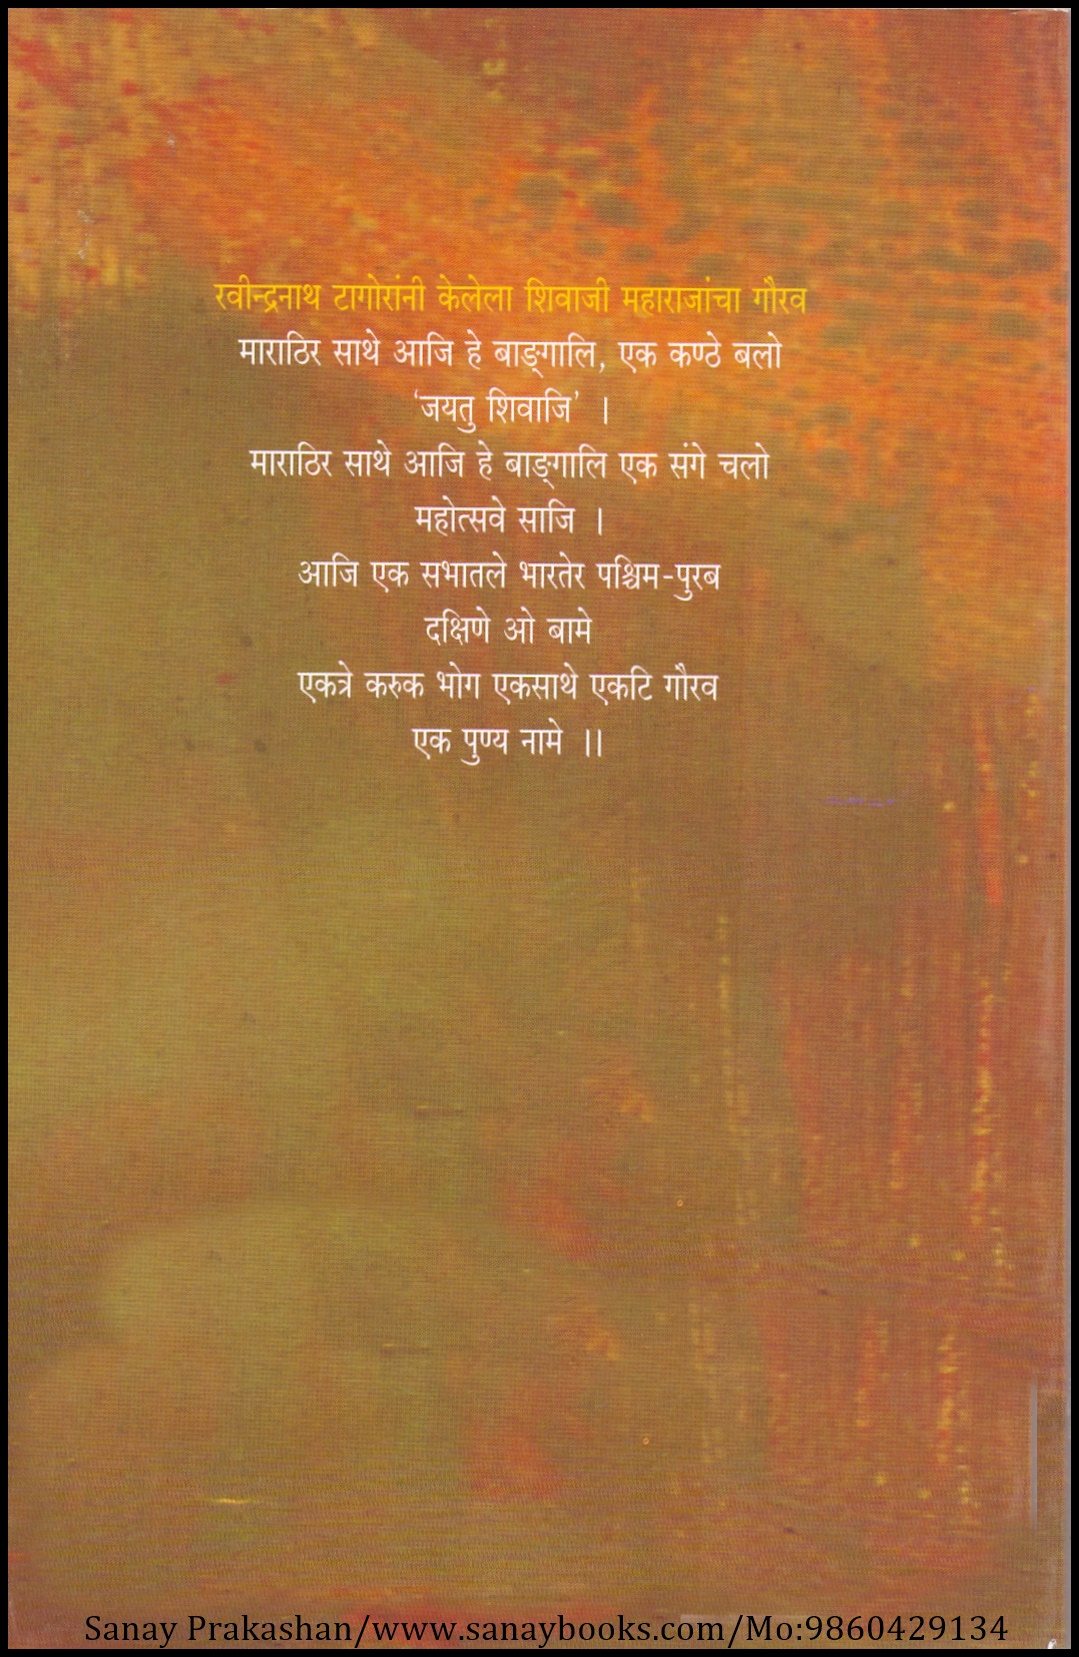 रवीन्द्रनाथ टागोरांनी केलेला शिवाजी महाराजांचा गौरव
माराठिर साथे आजि हे बाङ्गालि, एक कण्ठे बलो
‘जयतु शिवाजि’ ।
माराठिर साथे आजि हे बाङ्गालि एक संगे चलो
महोत्सवे साजि ।
आजि एक सभातले भारतेर पश्चिम-पुरब
दक्षिणे ओ बामे
एकत्रे करुक भोग एकसाथे एकटि गौरव
एक पुण्य नामे ।।
Sanay Prakashan/www.sanaybooks.com/Mo:9860429134